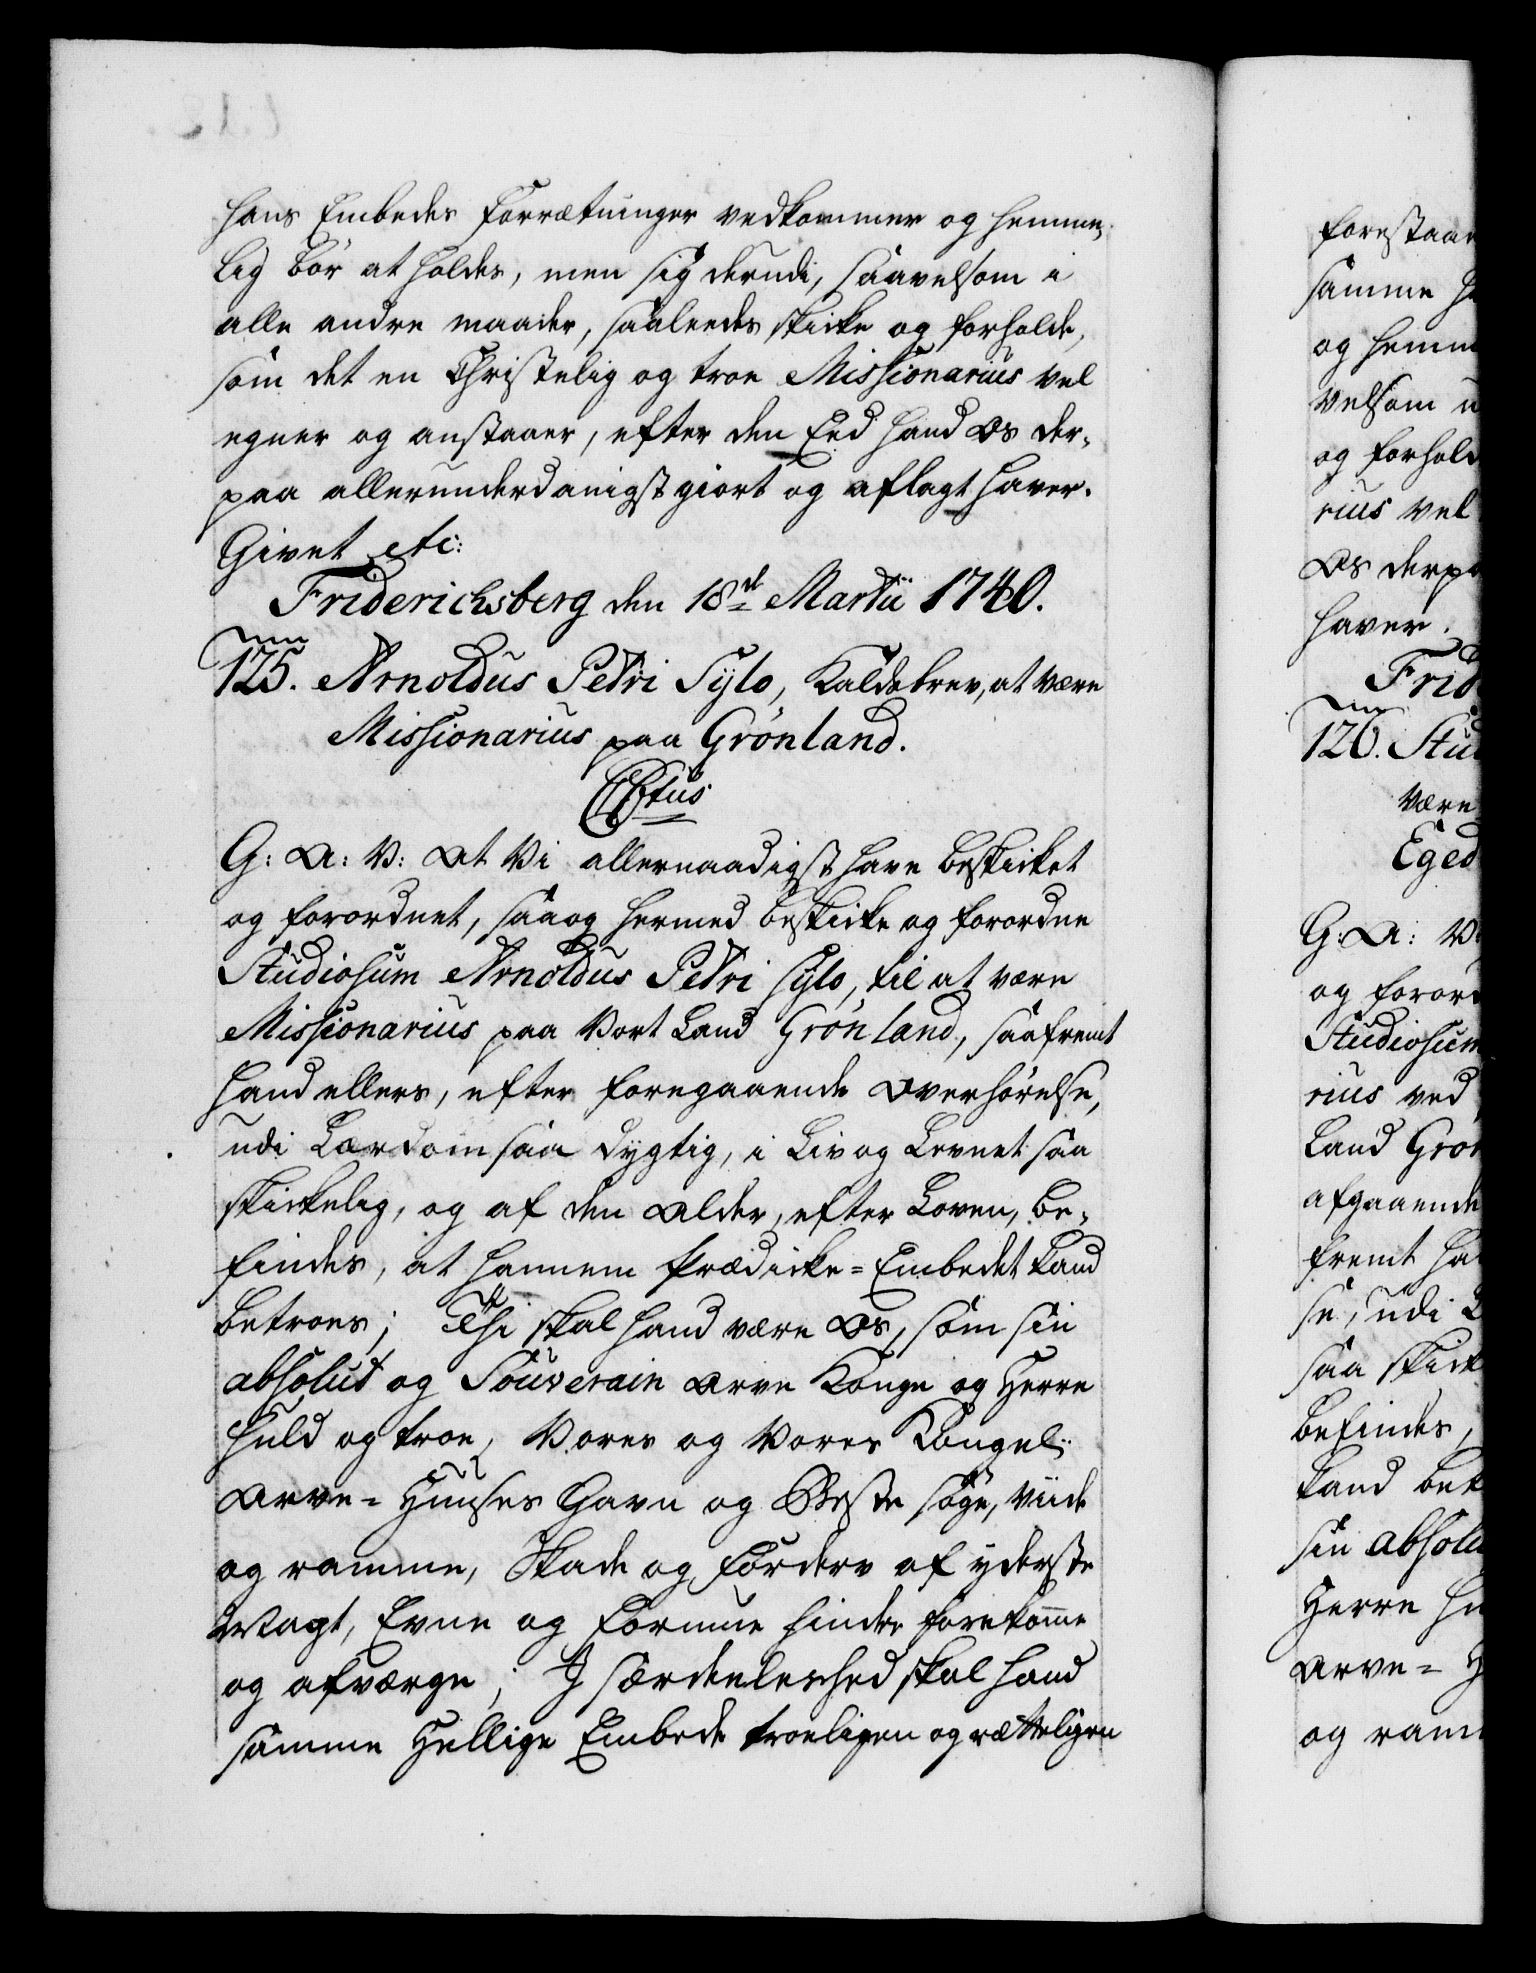 hans Embedes Forrætninger vedkommer og hemme-
lig bør at holdes, men sig derudi, saavelsom i
alle andre maader, saaleedes skicke og forholde,
som det en Christelig og troe Missionarius vel
egner og anstaaer, efter den Eed hand Os der-
paa allerunderdanigst giort og aflagt haver.
Givet etc:
Friderichsberg den 18de Martii 1740.
125. Arnoldus Petri Sylo, Kaldsbrev, at være
Missionarius paa Grönland.
CPtus
G: A: V: At Vi allernaadigst have beskicket
og forordnet, saa og hermed beskicke og forordne
Studiosum Arnoldus Petri Sylo, til at være
Missionarius paa Vort Land Grönland, saafremt
hand ellers, efter foregaaende Overhörelse,
udi Lærdom saa dygtig, i Liv og Levnet saa
skickelig, og af den Alder, efter Loven, be-
findes, at hannem Prædicke-Embedet kand
betroes; Thi skal hand være Os, som sin
absolut og Souverain Arve Konge og Herre
Huld og troe, Vores og Vores Kongel:
Arve-Huuses Gavn og Beste söge, viide
og ramme, Skade og Forderv af yderste
Magt, Evne og Formue hindre forekomme
og afværge; I særdeeleshed skal hand
samme Hellige Embede troeligen og rætteligen
forestaae
samme H
og hemm
velsom u
og forhold
rius vel
Os derpa
haver.
Frid
126. Stud
være
Eged
G: A: V
og foror
Studiosum
rius ved
Land Grön
afgaaende
fremt ha
se, udi L
saa skick
befindes,
kand bet
sin absolu
Herre Hu
Arve-H
og ram